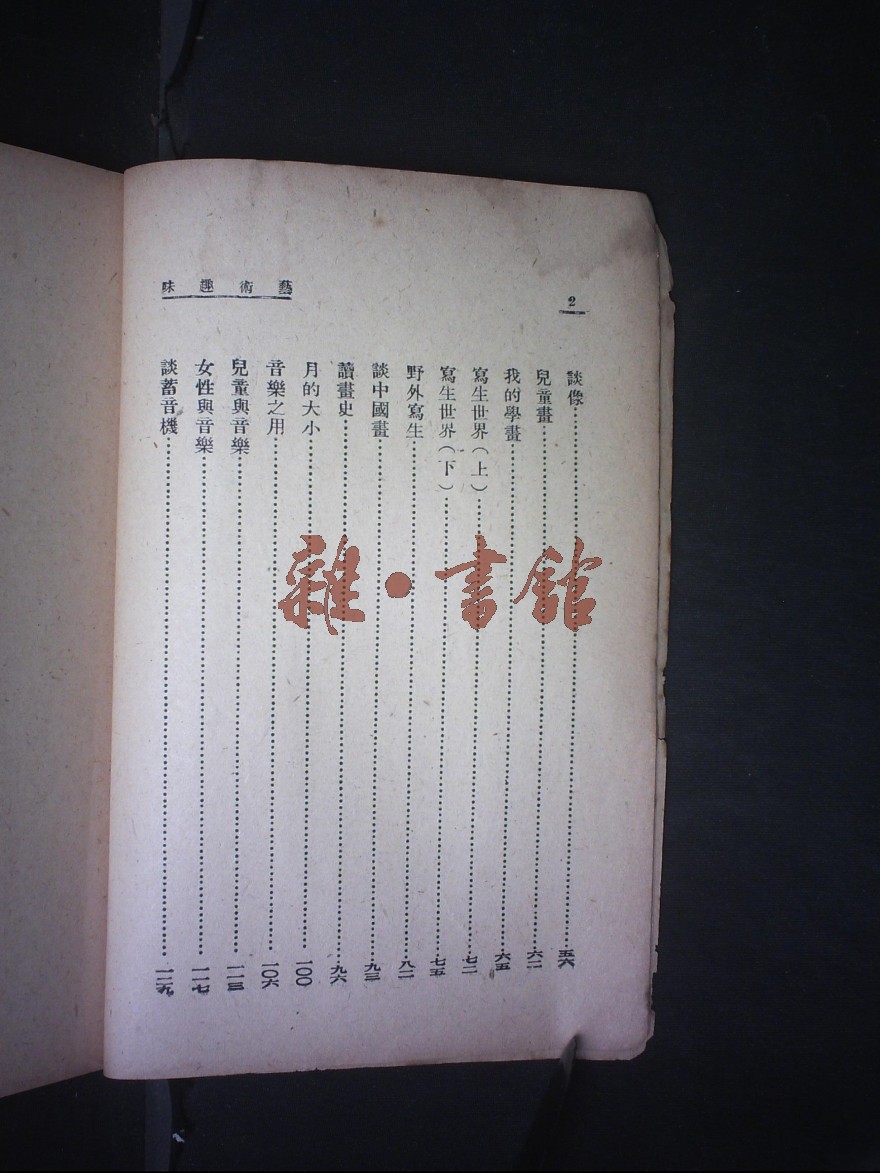 2
藝術趣味
談像……五六
兒童畫……六二
我的學畫……六五
寫生世界(上)……七二
寫生世界(下)……七五
野外寫生……八二
談中國畫……九三
讀畫史……九六
月的大小……一〇〇
音樂之用……一〇六
兒童與音樂……一一三
女性與音樂……一一七
談蓄音機……一二九
雜·書館